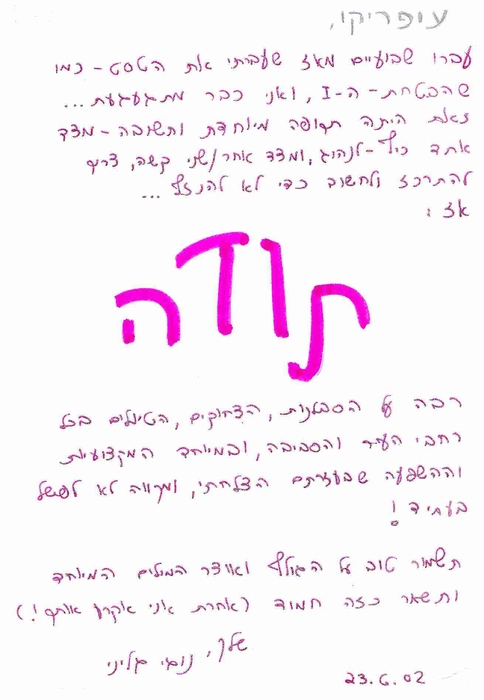 עופריקו,
עברו שבועיים מאז שעברתי את הטסט - כמו
שהבטחת - ה-I, ואני כבר מתגעגעת...
זאת היתה תקופה מיוחדת וחשובה - מצד
אחד כיף - לנהוג, ומצד אחר/שני קשה, צריך
להתרכז ולחשוב כדי לא להנזף...
אז:
תודה
רבה על הסבלנות, הצחוקים, הטיולים בכל
רחבי העיר והסביבה, ובמיוחד המקצועיות
וההשפעה שבעזרתם הצלחתי, ומקווה לא לפשל
בעתיד!
תשמור טוב על הגולף ואוצר המילים המיוחד
ותשאר כזה חמוד (אחרת אני אקרע אותך!)
שלך, נוגי גליני
23.6.02